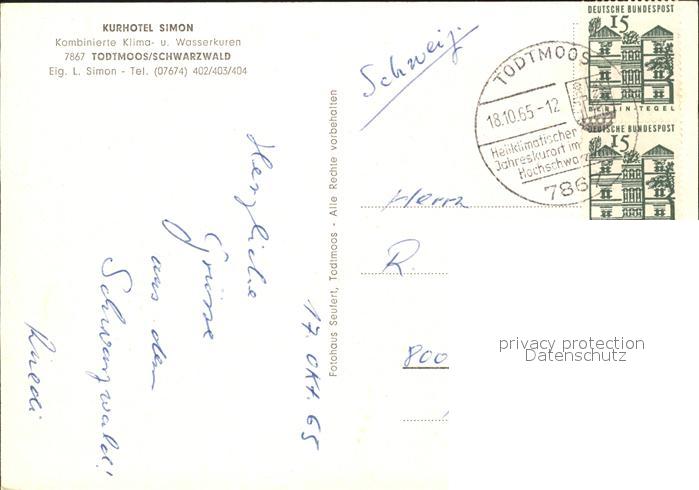 KURHOTEL SIMON
Kombinierte Klima- u. Wasserkuren
7867 TODTMOOS/SCHWARZWALD
Eig. L. Simon - Tel. (07674) 402/403/404
Herzliche
Grüsse
aus dem
Schwarzwald!
Ruedi
17. Okt. 65
Fotohaus Seufert, Todtmoos - Alle Rechte vorbehalten
Schweiz.
TODTMOOS
18.10.65-12
Heilklimatischer
Jahreskurort im
Hochschwarz
786
DEUTSCHE BUNDESPOST
15
BERLIN-TEGEL
DEUTSCHE BUNDESPOST
15
Herrn
R.
800
privacy protection
Datenschutz